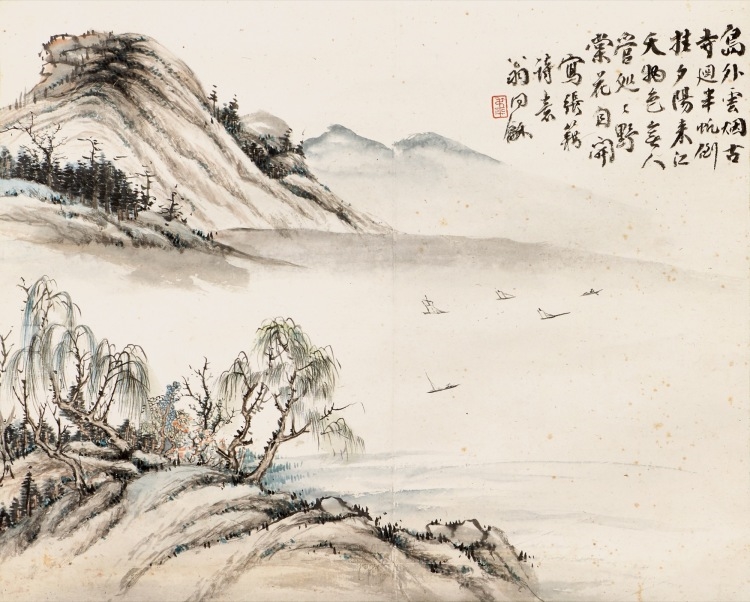 島外雲烟古
寺迴半帆倒
挂夕陽来江
天物色無人
管処〻野
棠花自開
寫張籍
诗意
翁同龢